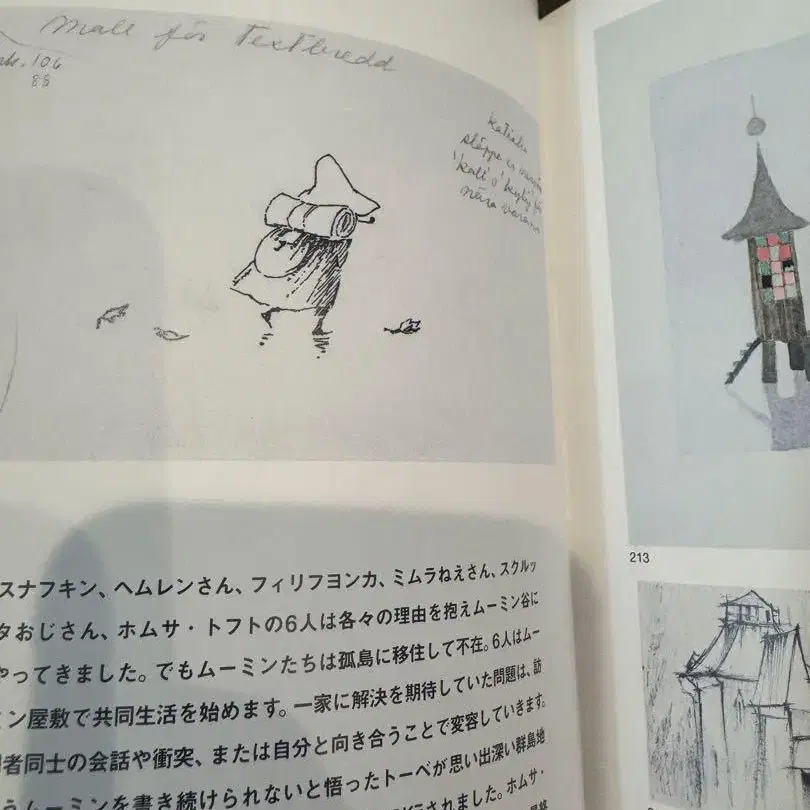 Mall för Textbredd
106
88
213
スナフキン、ヘムレンさん、フィリフヨンカ、ミムラねえさん、スクルッ
タおじさん、ホムサ・トフトの6人は各々の理由を抱えムーミン谷に
やってきました。でもムーミンたちは孤島に移住して不在。6人はムー
ミン屋敷で共同生活を始めます。一家に解決を期待していた問題は、訪
者同士の会話や衝突、または自分と向き合うことで変容していきます。
うムーミンを書き続けられないと悟ったトーベが思い出深い群島地
されました。ホムサ・